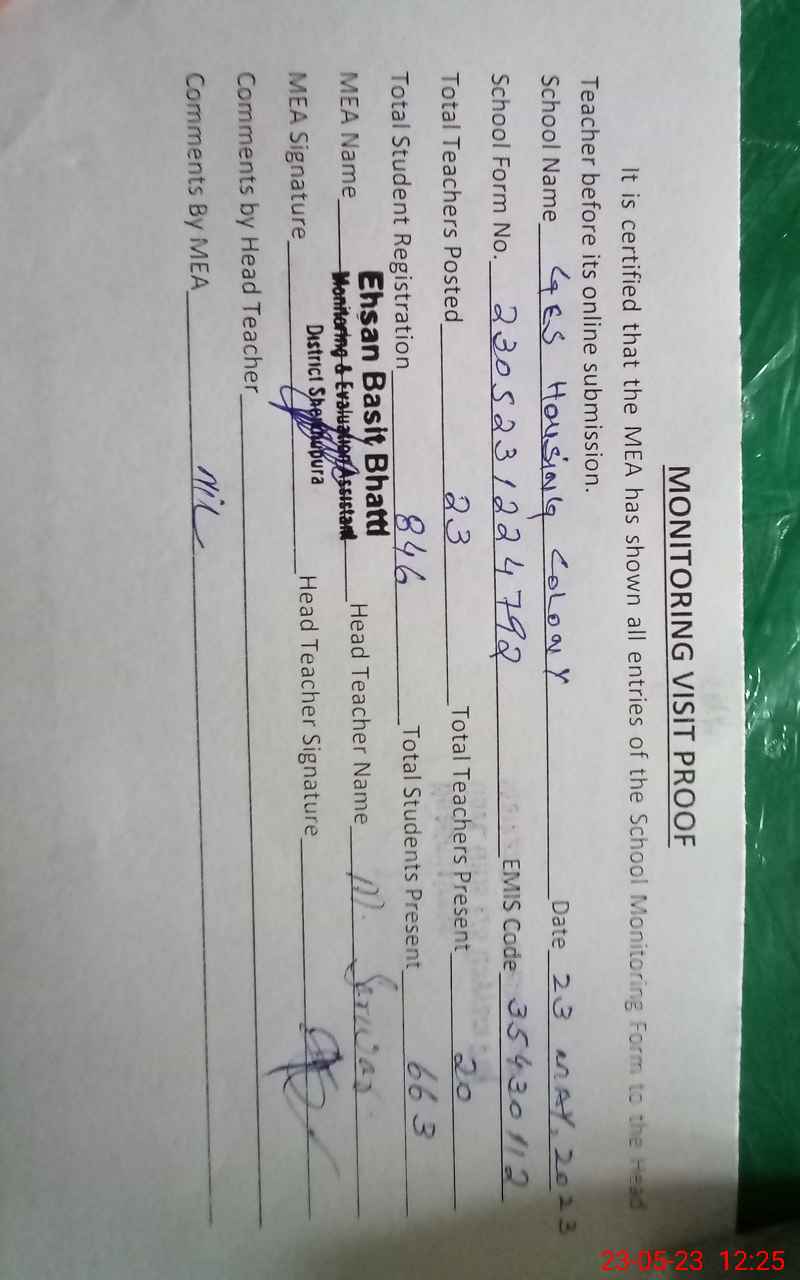 MONITORING VISIT PROOF
It is certified that the MEA has shown all entries of the School Monitoring Form to the Head
Teacher before its online submission.
School Name GES HOUSING COLONY Date 23 MAY, 2023
School Form No. 2305231224792 EMIS Code 35430112
Total Teachers Posted 23 Total Teachers Present 20
Total Student Registration 846 Total Students Present 663
Ehsan Basit Bhatti
MEA Name Head Teacher Name M. Sarwar
Monitoring & Evaluation Assistant
District Sheikhupura
MEA Signature Head Teacher Signature
Comments by Head Teacher
Comments By MEA NiL
23-05-23 12:25